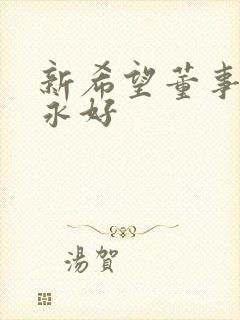 新希望董事
永好
湯賀